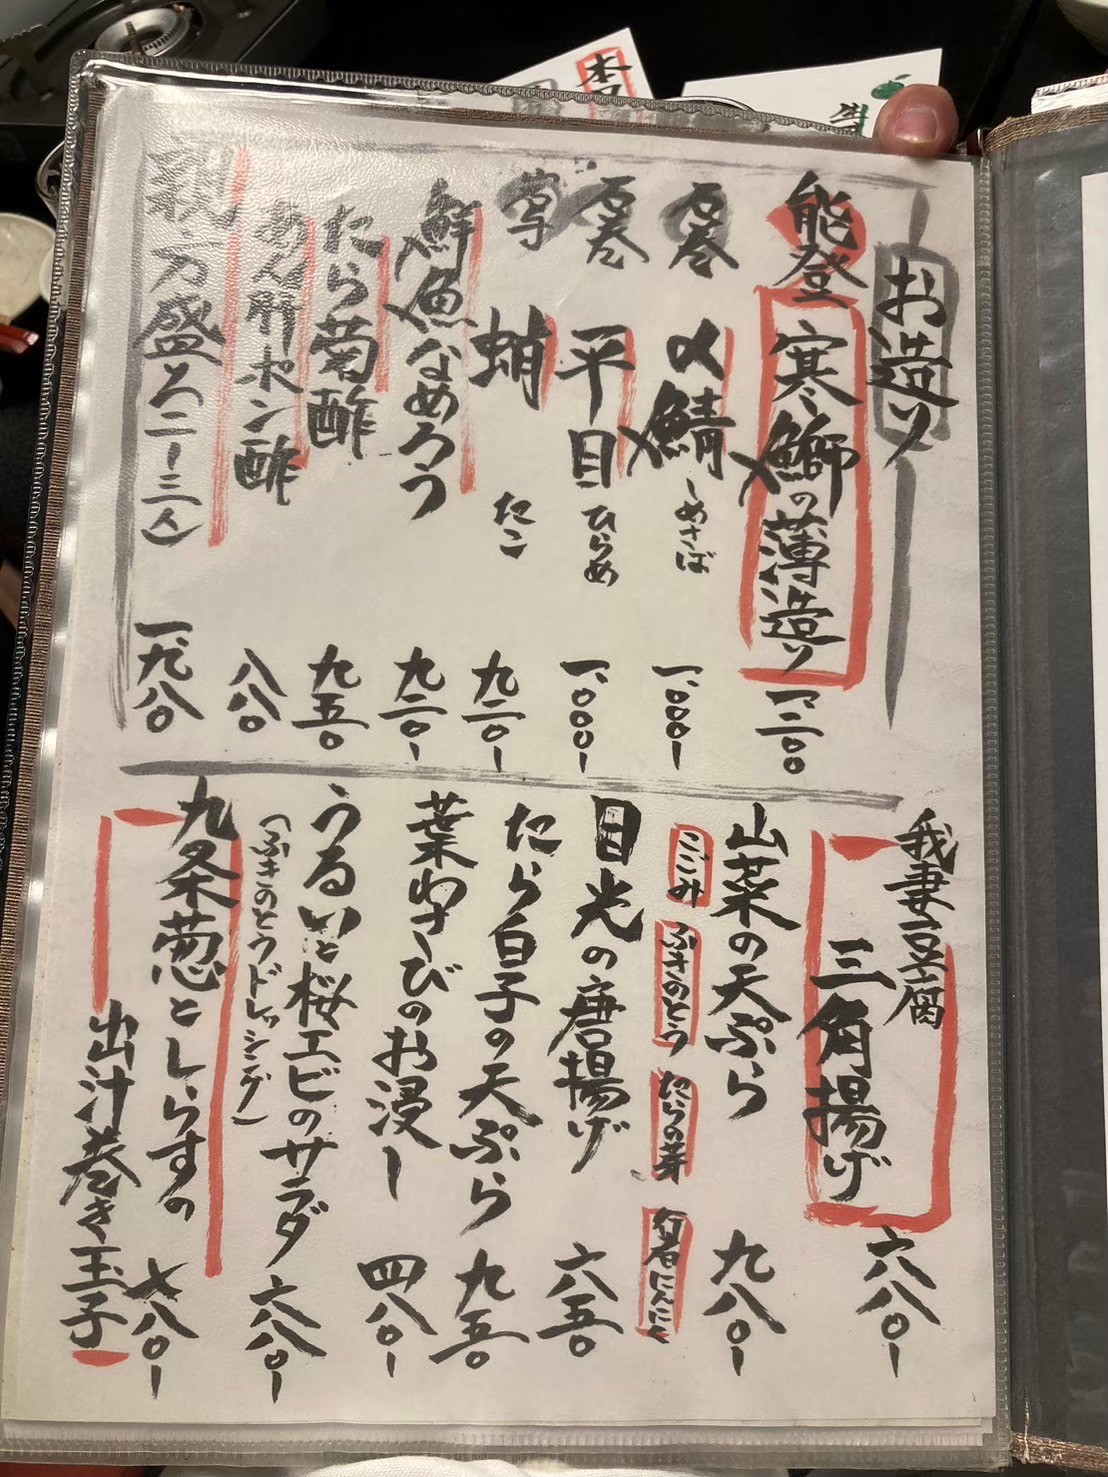 お造り
能登 寒鰤の薄造り 一、二〇〇
石巻 〆鯖 しめさば 一、〇〇〇ー
石巻 平目 ひらめ 一、〇〇〇ー
蛸 たこ 九二〇ー
鮮魚なめろう 九二〇ー
たら菊酢 九五〇
あん肝ポン酢 八八〇
親方盛(二ー三人) 一、九八〇
我妻豆腐
三角揚げ 六八〇ー
山菜の天ぷら 九八〇ー
こごみ ふきのとう たらの芽 行者にんにく
目光の唐揚げ 六五〇
たら白子の天ぷら 九五〇
葉わさびのお浸し 四八〇ー
うるいと桜エビのサラダ 六八〇ー
(ふきのとうドレッシング)
九条葱としらすの
出汁巻き玉子 七八〇ー